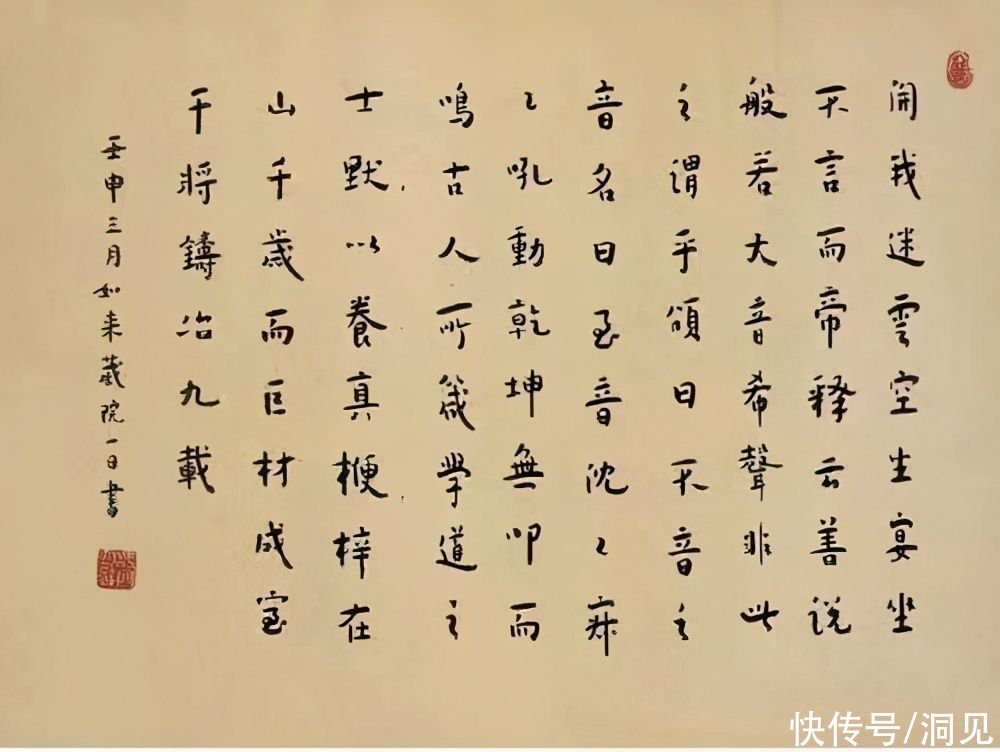 開我迷雲空生宴坐
不言而帝释云善説
般若大音希聲非此
之謂乎頌曰不音之
音名曰至音沈〻寂
〻吼動乾坤無叩而
鳴古人所箴學道之
士默以養真楩梓在
山千歲而巨材成室
干將鑄冶九載
壬申三月如来藏院一日書
快传号/洞见